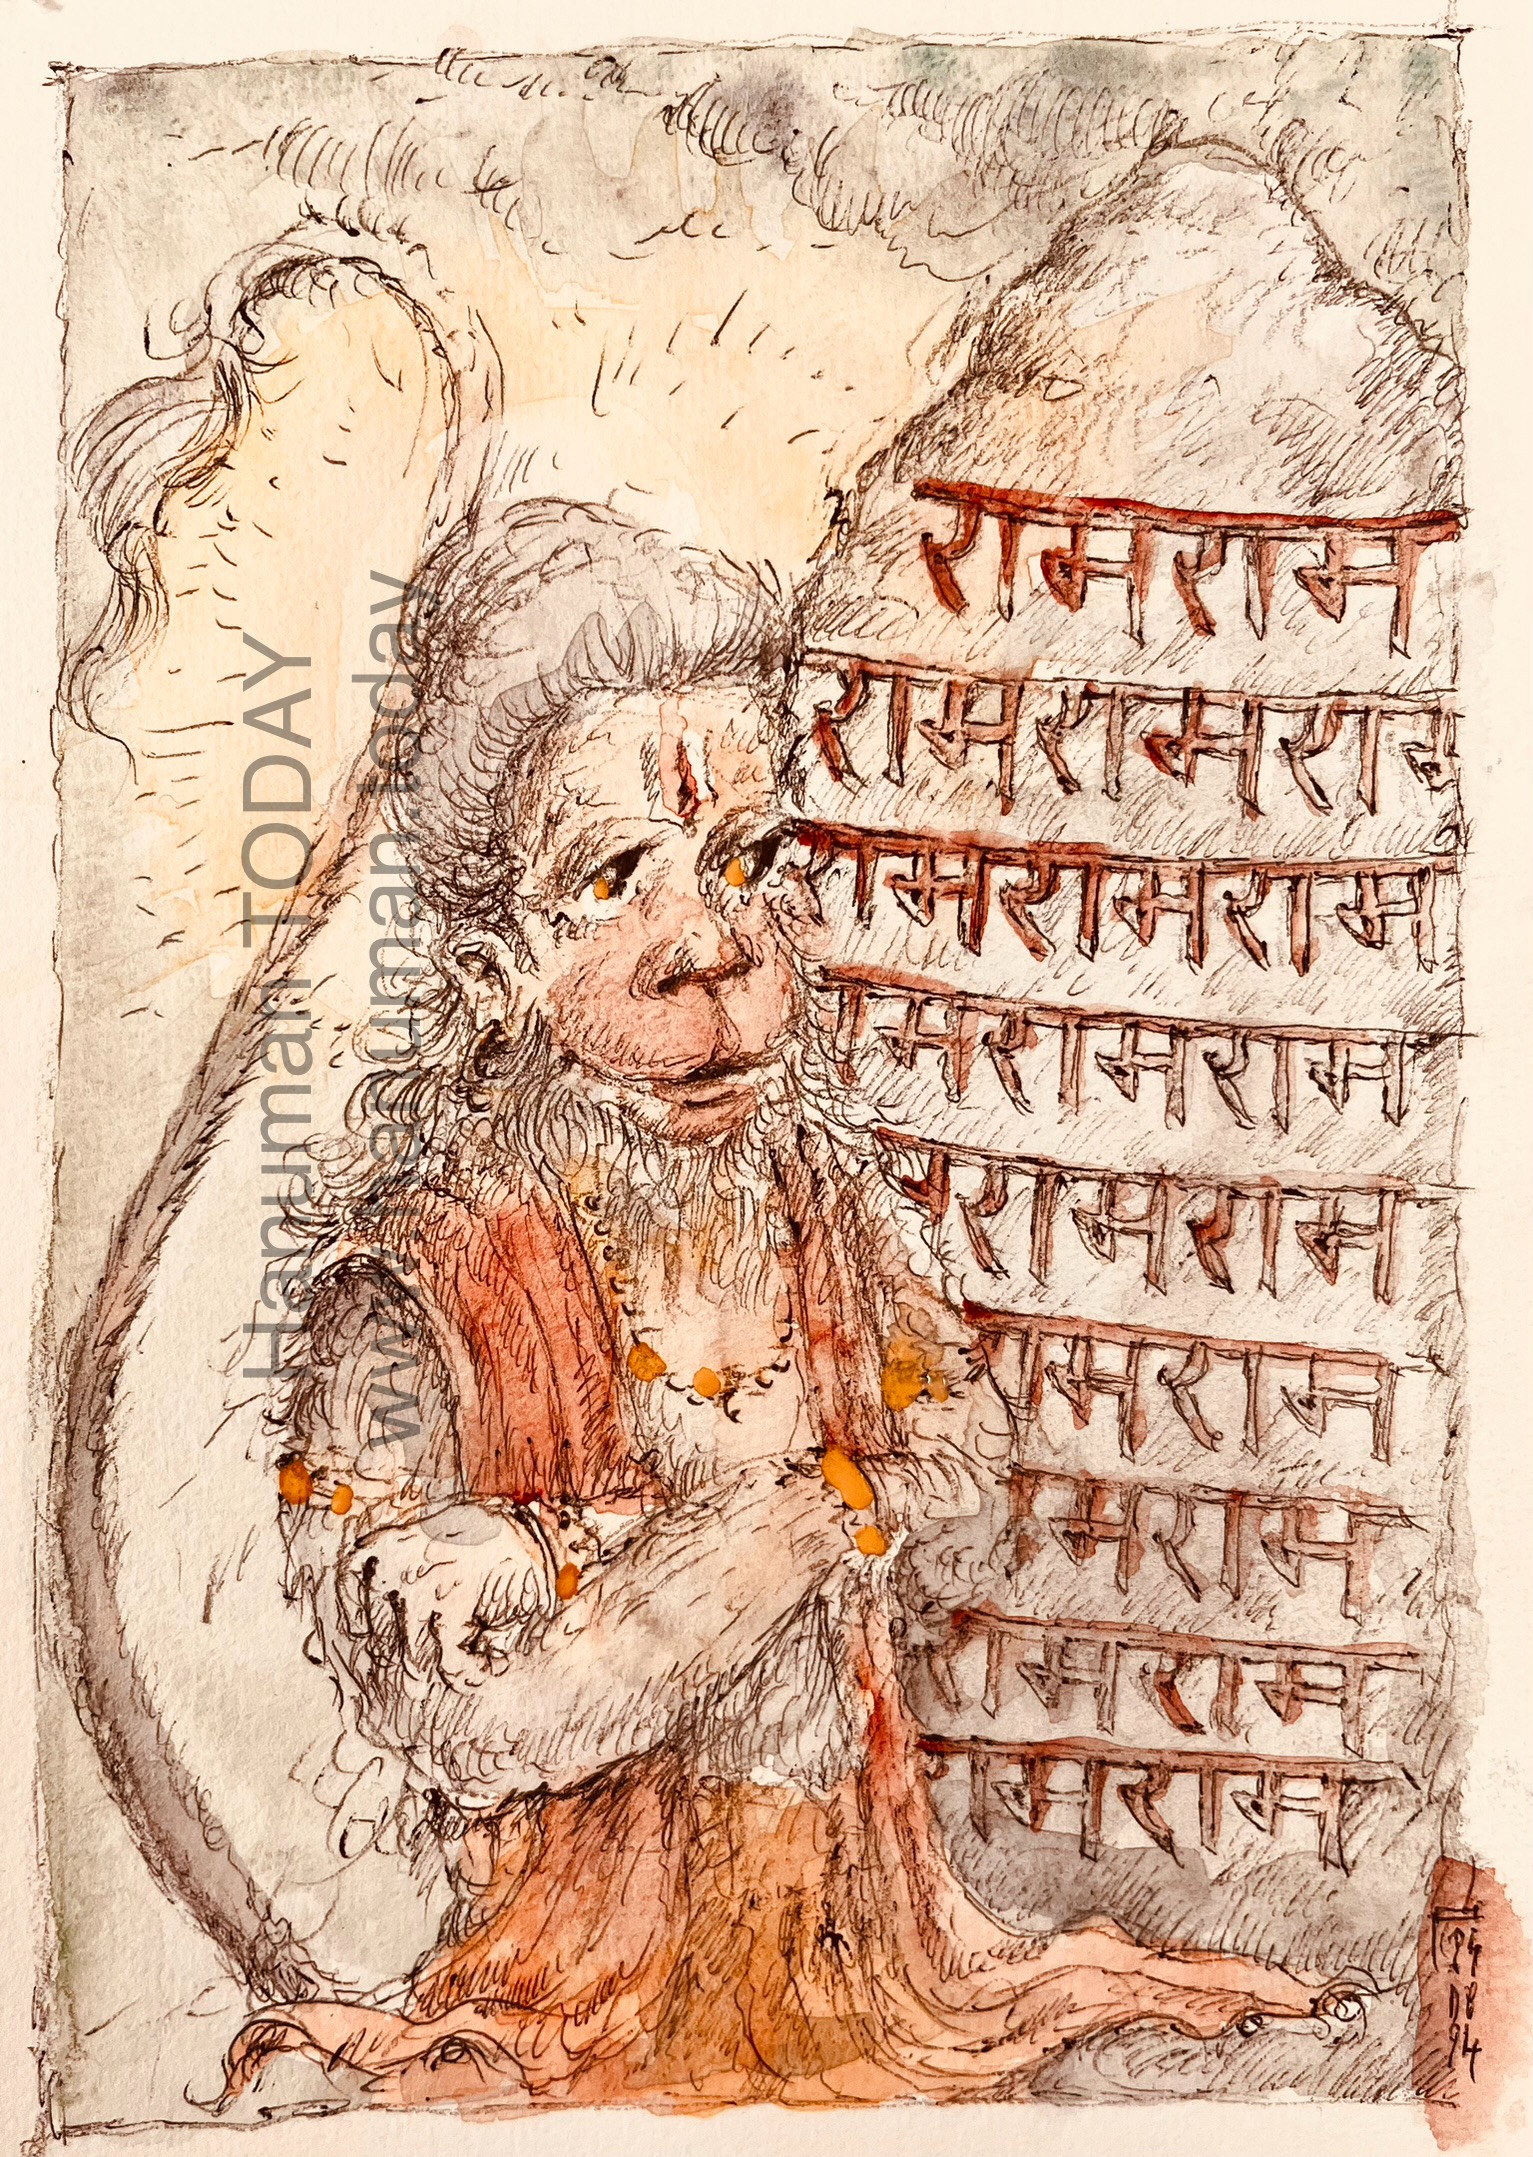 रामराम
रामरामराम
रामरामराम
ामरामराम
मरामराम
ामराम
मराम
रामराम
ामराम
Hanuman TODAY
www.hanuman.today